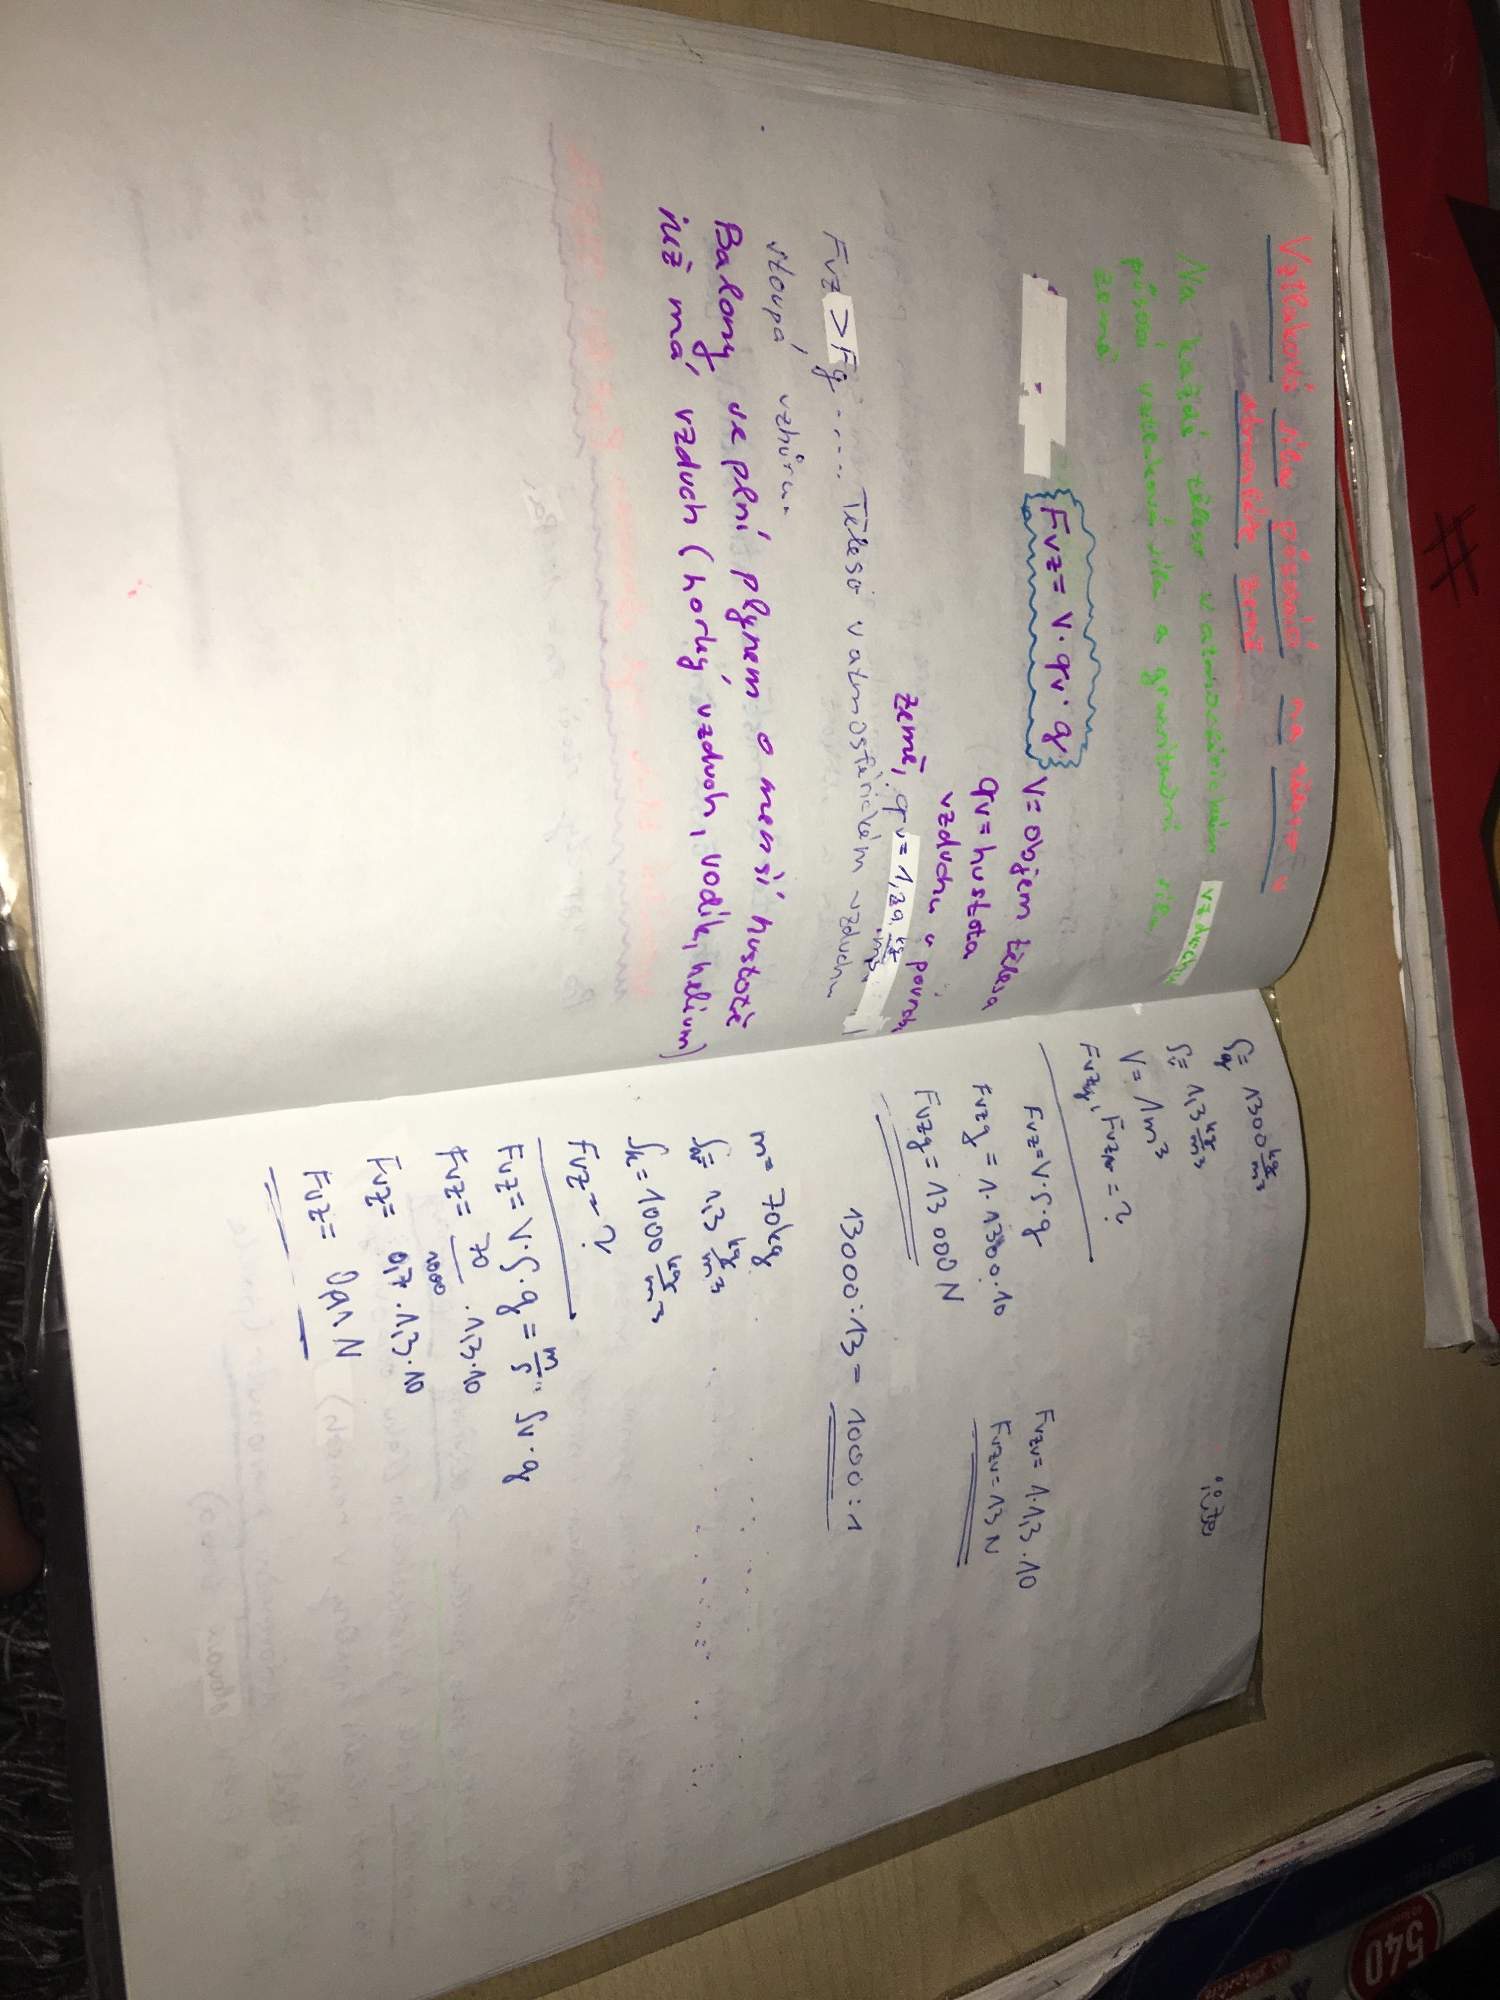 Vztlaková síla působící na těleso v
atmosféře země
Na každé těleso v atmosférickém vzduchu
působí vztlaková síla a gravitační síla
země
Fvz = V · ϱv · g
V = objem tělesa
ϱv = hustota
vzduchu u povrchu
země, ϱv = 1,29 kg/m3
Fvz > Fg ..... Těleso v atmosférickém vzduchu
stoupá vzhůru.
Balony se plní plynem o menší hustotě
než má vzduch (horký vzduch, vodík, helium)
ϱg = 1300 kg/m3
ϱ = 1,3 kg/m3
V = 1m3
Fvzg, Fvzv = ?
Fvz = V · ϱ · g
Fvzg = 1 · 1300 · 10
Fvzg = 13 000 N
Fvzv = 1 · 1,3 · 10
Fvzv = 13 N
13000 : 13 = 1000 : 1
m = 70 kg
ϱ = 1,3 kg/m3
ϱ = 1000 kg/m3
Fvz = ?
Fvz = V · ϱ · g = m/ϱ · ϱv · g
Fvz = 70/1000 · 1,3 · 10
Fvz = 0,7 · 1,3 · 10
Fvz = 0,91 N
540
#